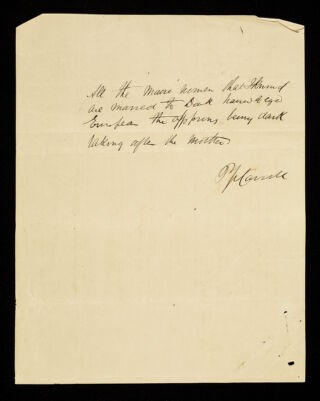 All the Maori women that I know of
are married to Dark haired & eyed
European the offspring being dark
taking after the Mother